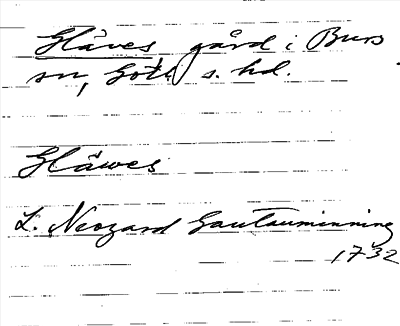 Häves gård i Burs
sn, Gotl. s. hd.
Häwes
L. Neogard Gautauminning
1732